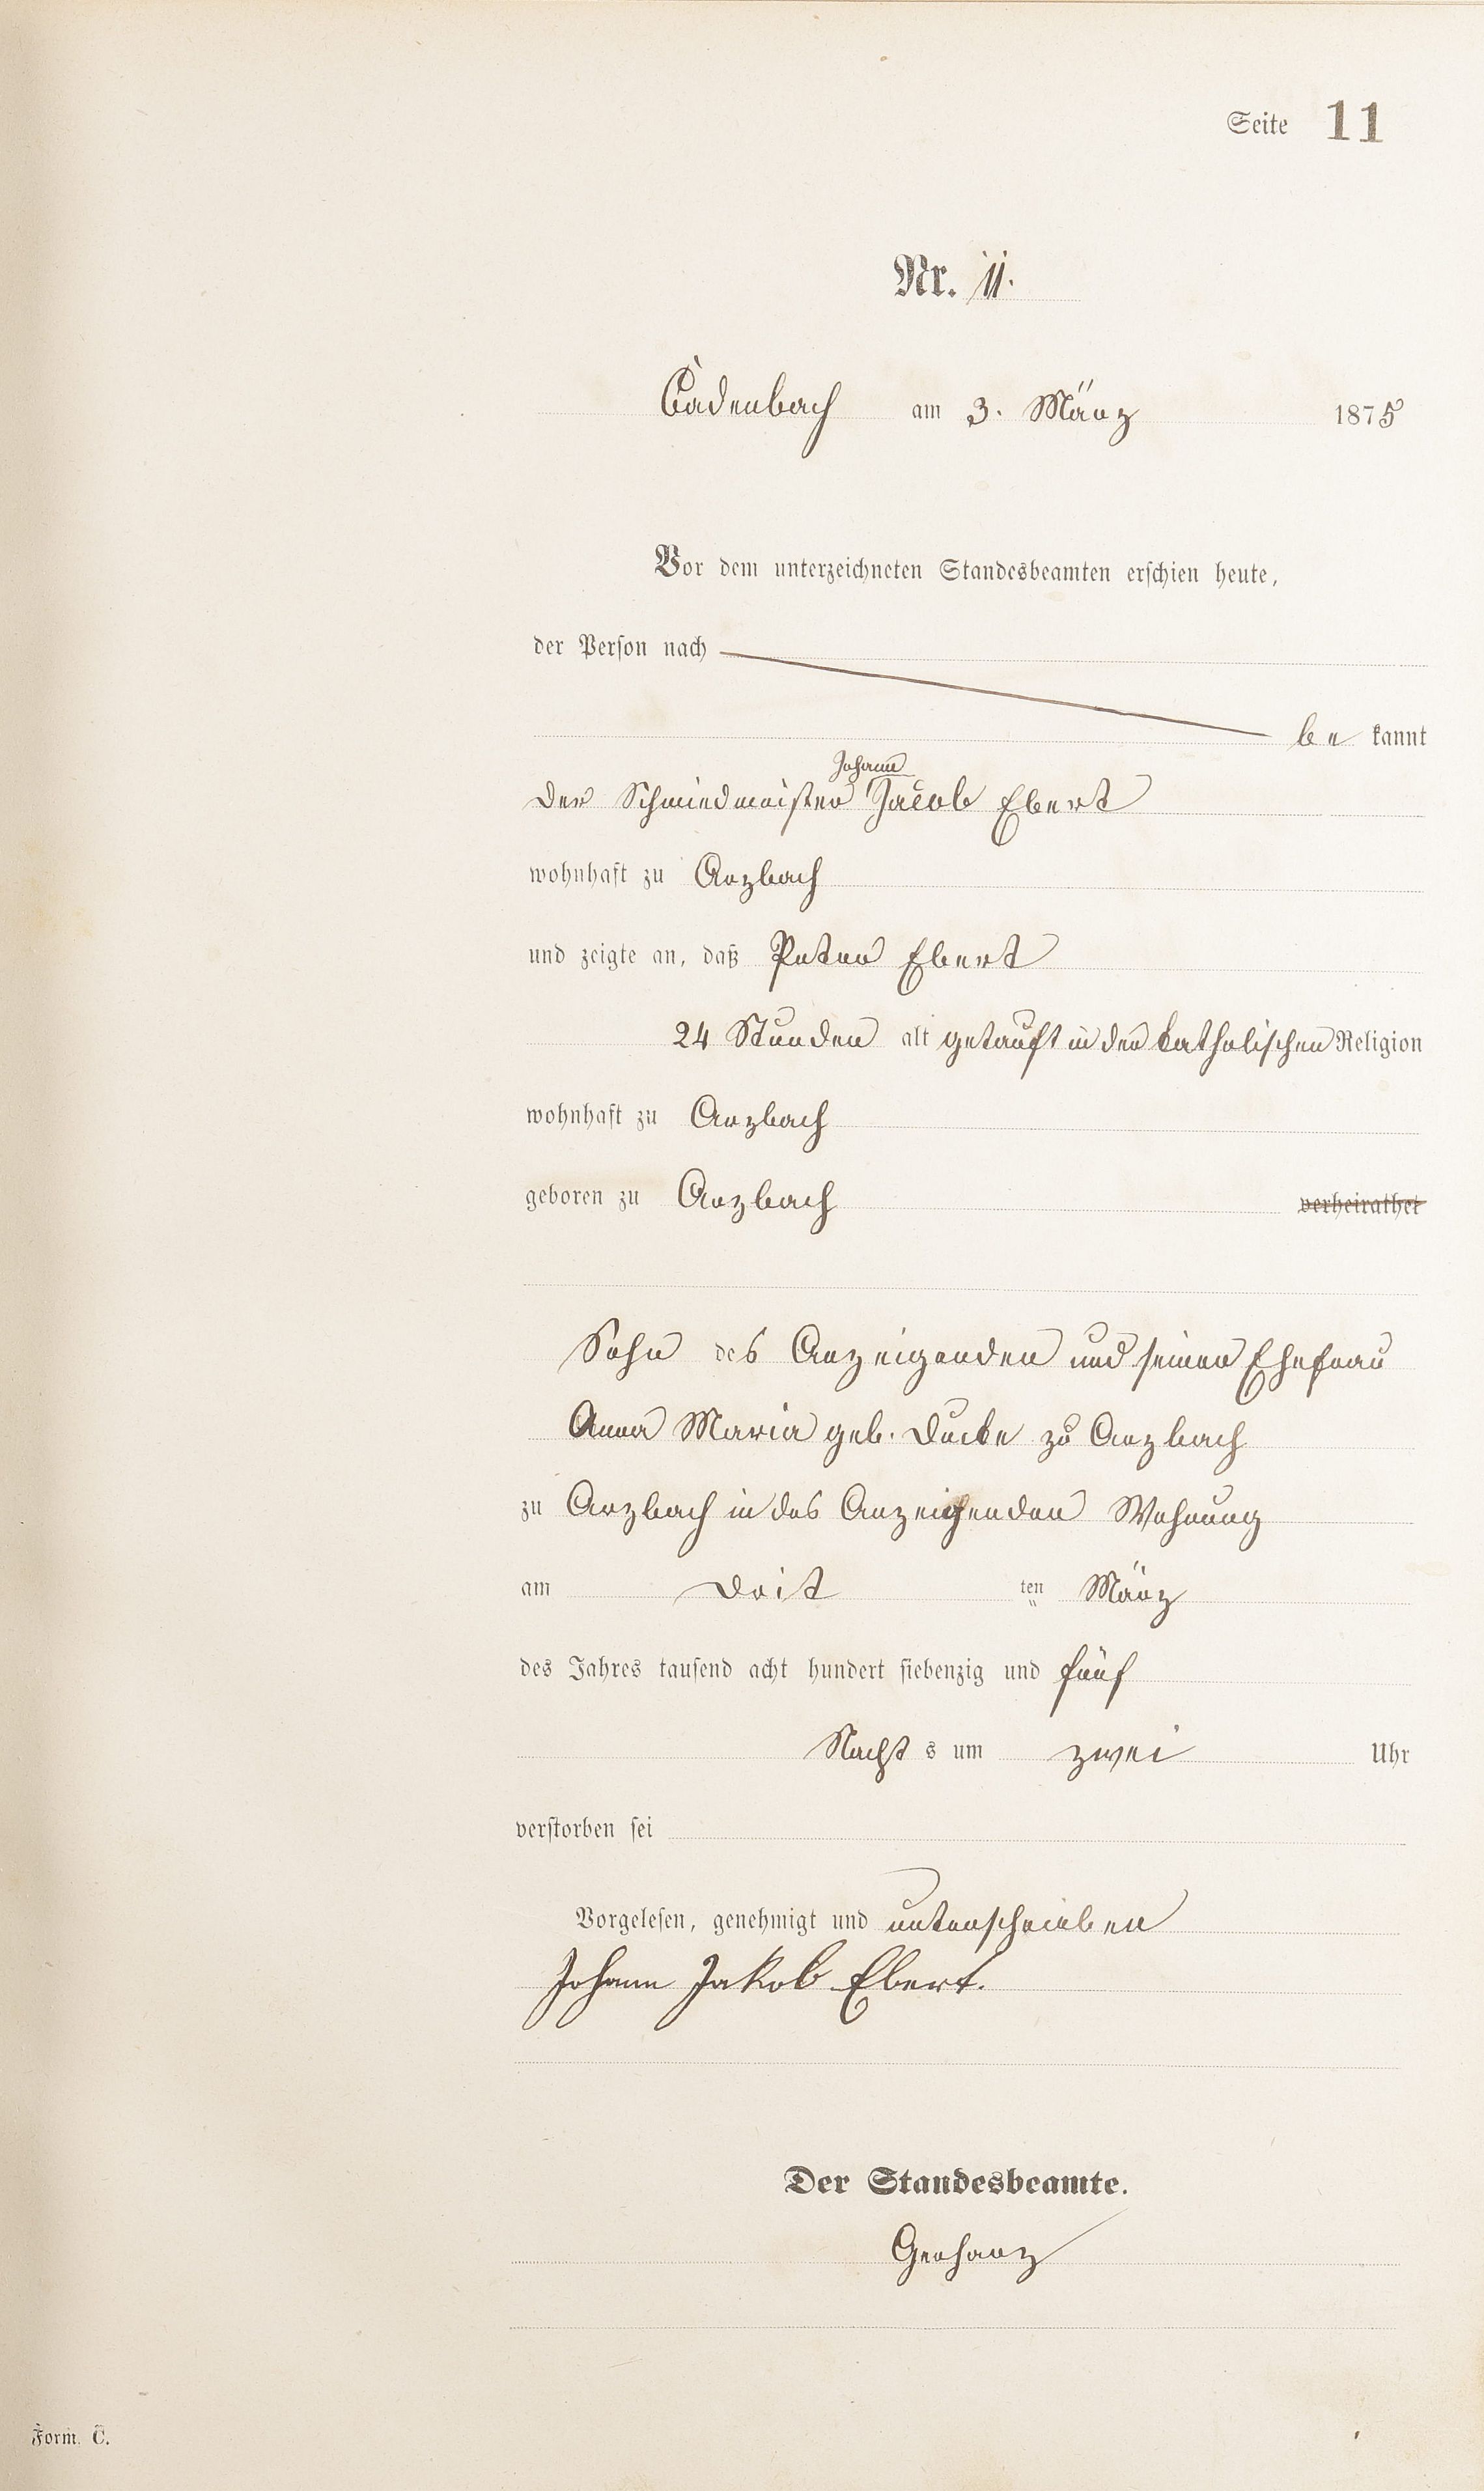 Seite 11
Nr. 11.
Cadenbach am 3. März 1875
Vor dem unterzeichneten Standesbeamten erschien heute,
der Person nach
be kannt
der Schmiedmeister Johann Jacob Ebert
wohnhaft zu Arzbach
und zeigte an, daß Peter Ebert
24 Stunden alt getauft in der katholischen Religion
wohnhaft zu Arzbach
geboren zu Arzbach verheirathet
Sohn des Anzeigenden und seiner Ehefrau
Anna Maria geb. Ducke zu Arzbach
zu Arzbach in des Anzeigenden Wohnung
am Drit ten März
des Jahres tausend acht hundert siebenzig und fünf
Nacht s um zwei Uhr
verstorben sei
Vorgelesen, genehmigt und unterschrieben
Johann Jakob Ebert.
Der Standesbeamte.
Gerharz
Form. C.